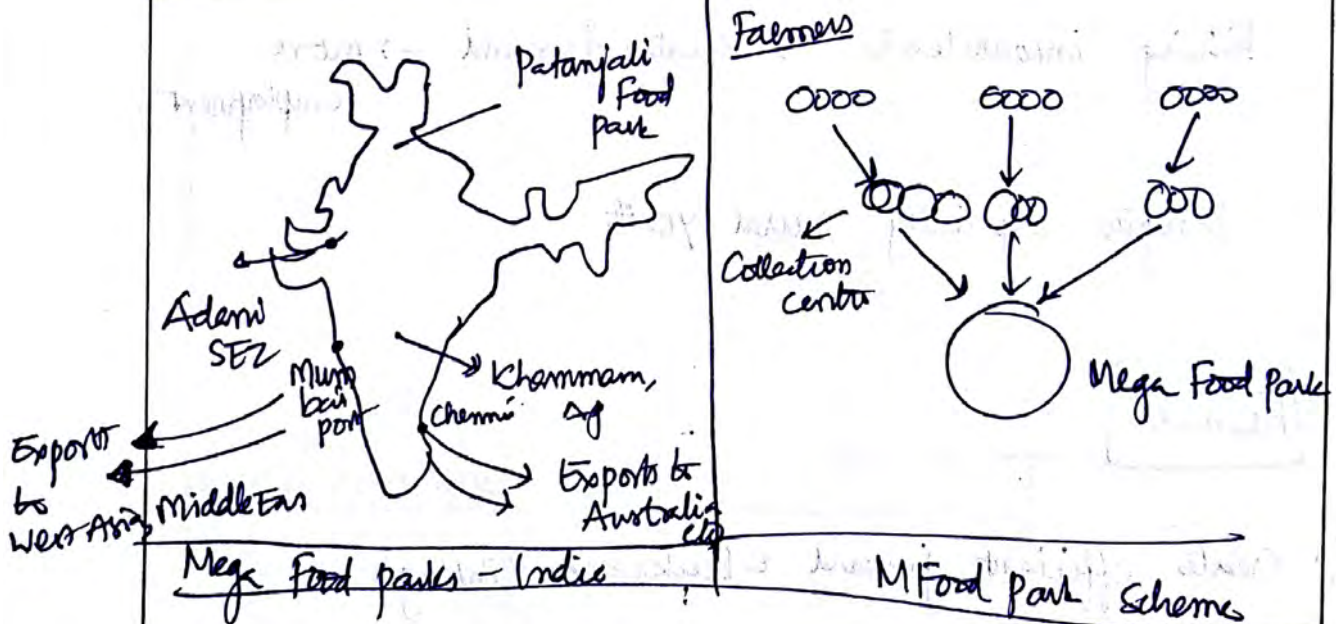 Patanjali
Food
Park
Adani
SEZ
Mum
bai
port
Khammam,
Chennai
Exports
to
West Asia,
Middle Eas
Exports to
Australia
etc
Mega Food parks - India
Farmers
Collection
centre
Mega Food Park
MFood Park Scheme